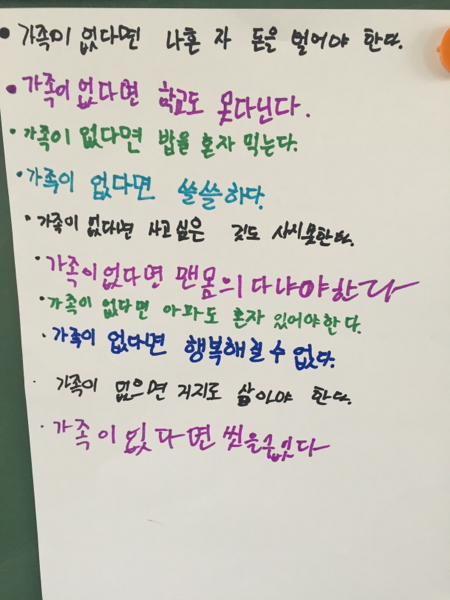 가족이 없다면 나혼 자 돈을 벌어야 한다.
가족이 없다면 학교도 못다닌다.
가족이 없다면 밥을 혼자 먹는다.
가족이 없다면 쓸쓸하다.
가족이 없다면 사고싶은 것도 사지못한다.
가족이없다면 맨몸의 다냐야한다
가족이 없다면 아파도 혼자 있어야한다.
가족이 없다면 행복해질수 없다.
가족이 없으면 거지로 살아야 한다.
가족이 없다면 씻을